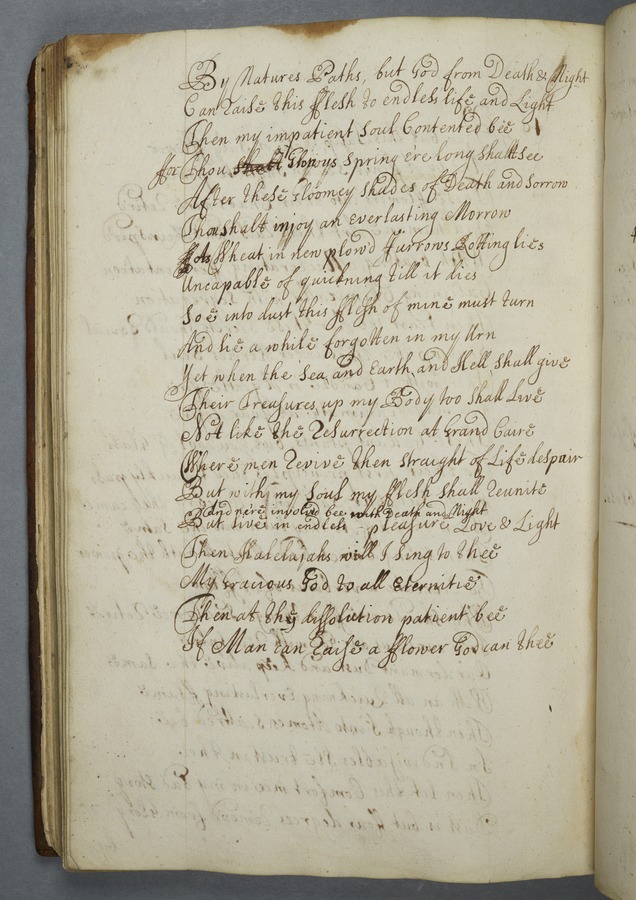 By Natures Paths, but God from Death & Night
Can Raise this fflesh to endless life and Light
Then my impatient Soul Contented bee
ffor Thou shalt Glorys Spring ere long shallt see
After these gloomey shades of Death and Sorrow
Thou shalt injoy an everlasting Morrow
As Wheat in new plow'd ffurrows Rotting lies
Uncapable of quickning till it dies
Soe into dust this fflesh of mine must turn
And lie a while forgotten in my Urn
Yet when the Sea, and Earth, and Hell shall give
Their Treasures up my Body too shall Live
Not like the Resurrection at Grand Caire
Where men Revive then straight of Life despair
But with my Soul my fflesh shall Reunite
and nere involved bee with Death and Night
But live in endless pleasure Love & Light
Then Halelujahs will I sing to thee
My Gracious God to all eternitie
Then at thy dissolution patient bee
If Man can Raise a fflower God can thee